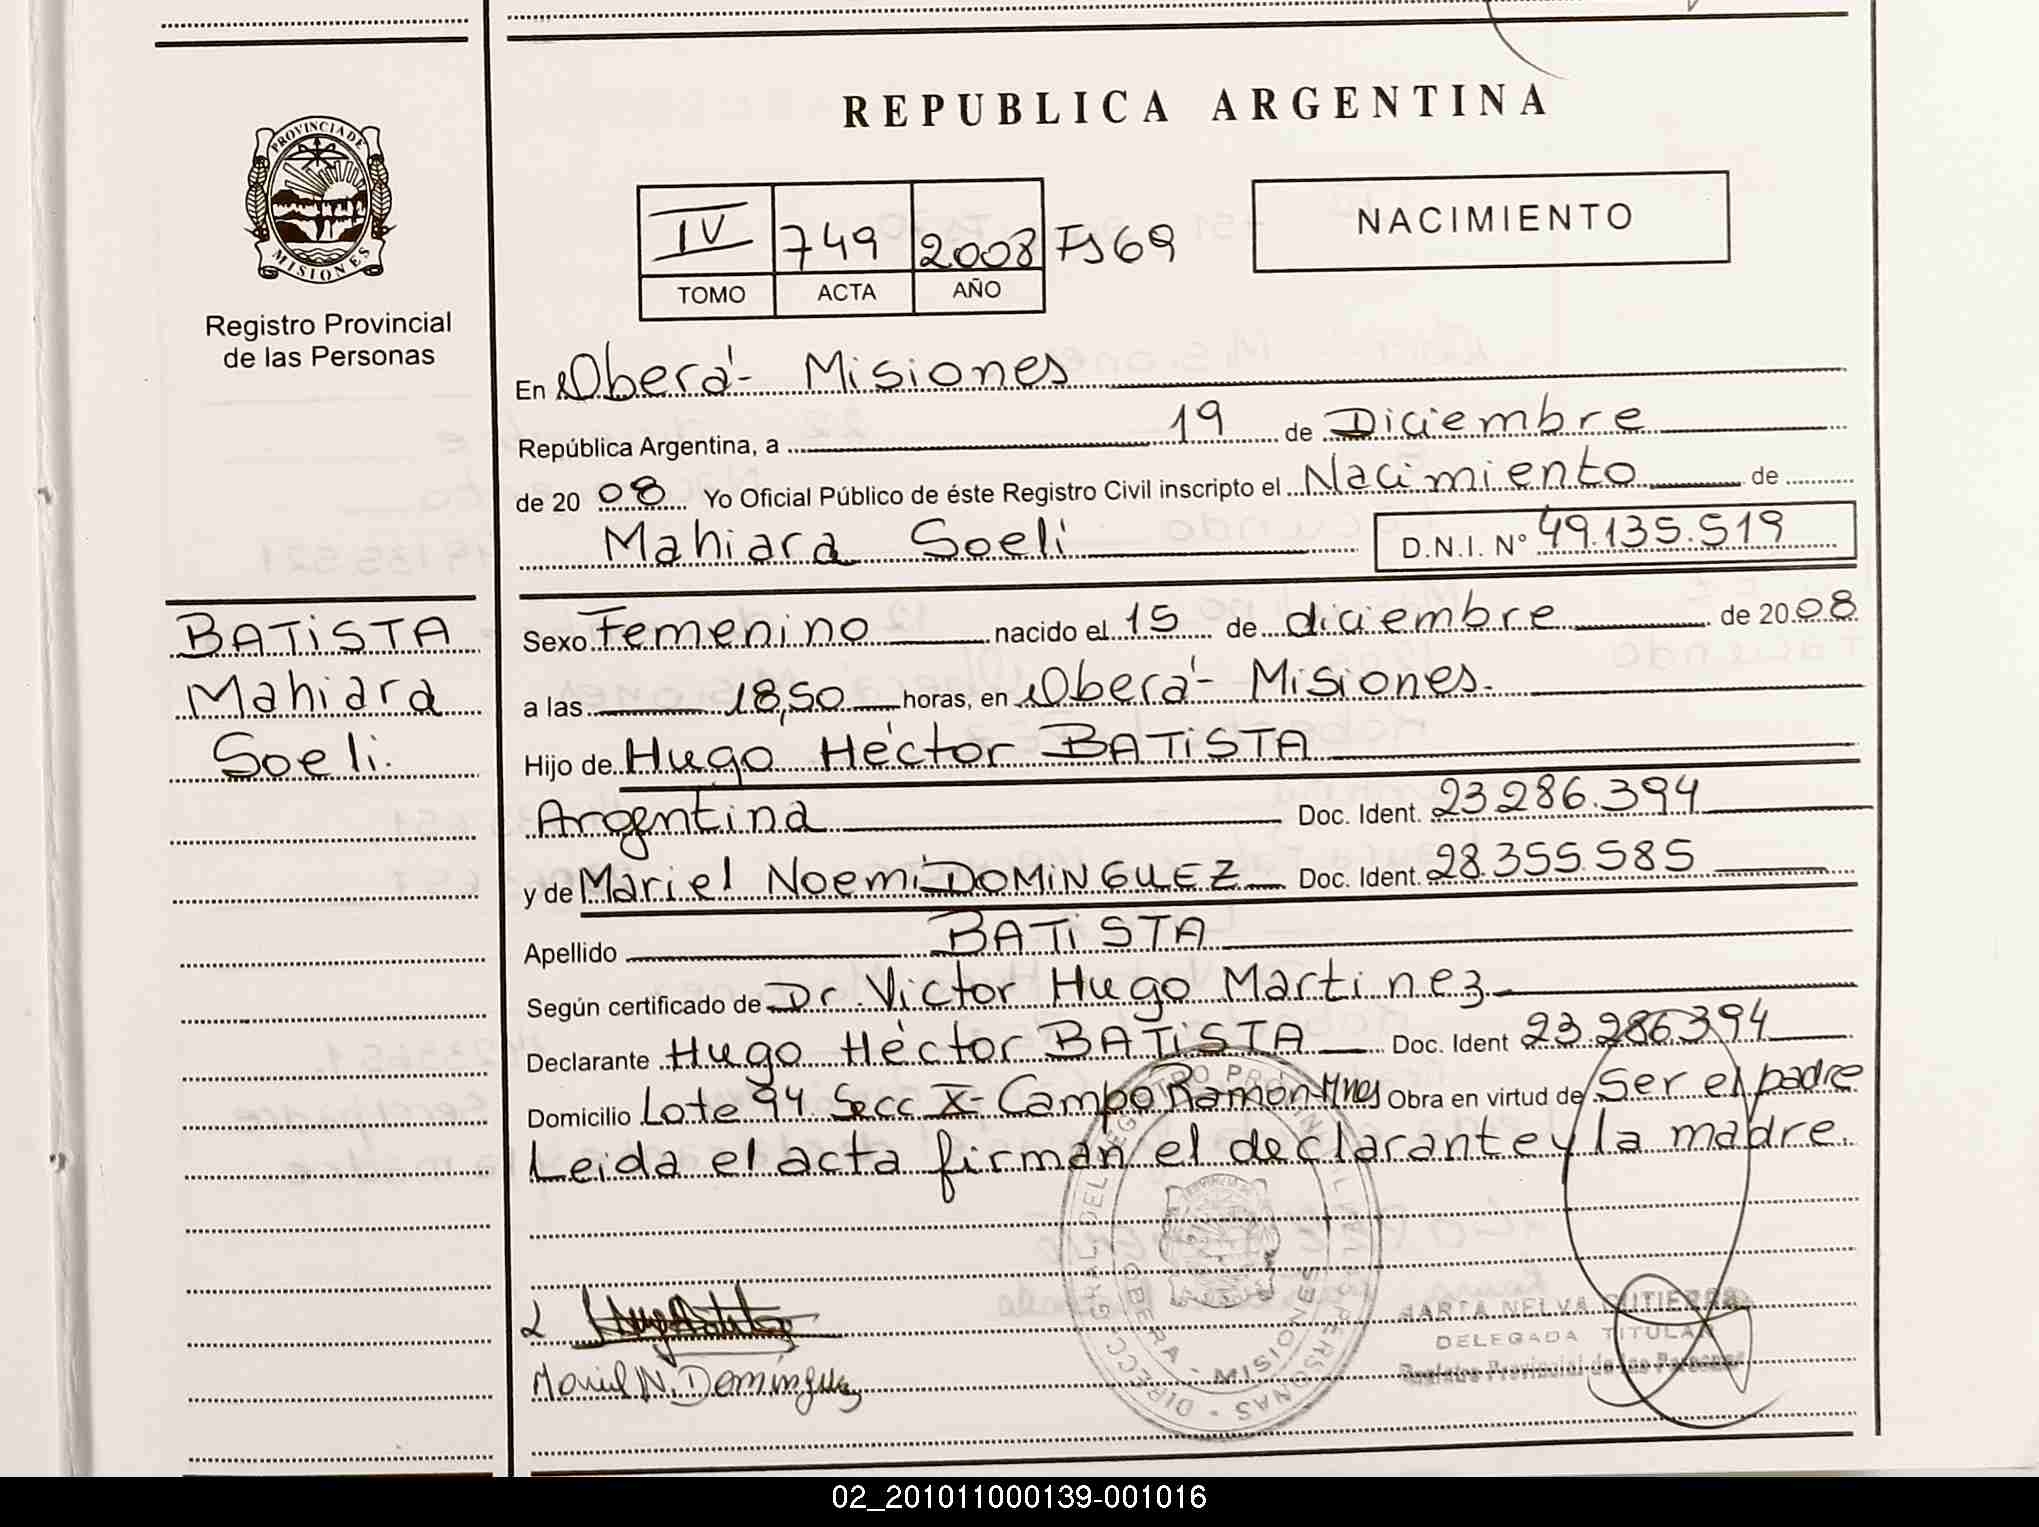 REPUBLICA ARGENTINA
PROVINCIA DE
MISIONES
Registro Provincial
de las Personas
IV 749 2008 Fs 69
TOMO ACTA AÑO
NACIMIENTO
En Oberá - Misiones
República Argentina, a 19 de Diciembre
de 20 08 Yo Oficial Público de éste Registro Civil inscripto el Nacimiento de
Mahiara Soeli D.N.I. Nº 49.135.519
BATISTA
Mahiara
Soeli.
Sexo Femenino nacido el 15 de diciembre de 20 08
a las 18,50 horas, en Oberá - Misiones.
Hijo de Hugo Héctor BATISTA
Argentina Doc. Ident. 23.286.394
y de Mariel Noemí DOMINGUEZ Doc. Ident. 28.355.585
Apellido BATISTA
Según certificado de Dr. Victor Hugo Martinez
Declarante Hugo Héctor BATISTA Doc. Ident 23.286.394
Domicilio Lote 94 Secc X - Campo Ramón - Mnes Obra en virtud de Ser el padre
Leida el acta firman el declarante y la madre.
Mariel N. Domínguez
DIRECC. GRAL DEL REGISTRO PROVINCIAL DE LAS PERSONAS
OBERA - MISIONES
MARTA NELVA GUTIERREZ
DELEGADA TITULAR
Registro Provincial de las Personas
02_201011000139-001016